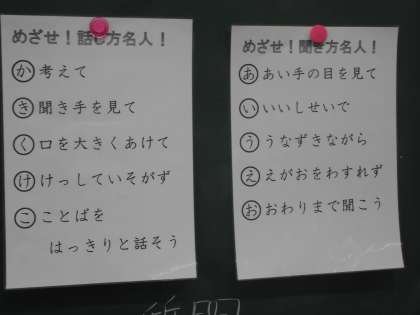 めざせ！話し方名人！
か 考えて
き 聞き手を見て
く 口を大きくあけて
け けっしていそがず
こ ことばを
はっきりと話そう
めざせ！聞き方名人！
あ あい手の目を見て
い いいしせいで
う うなずきながら
え えがおをわすれず
お おわりまで聞こう